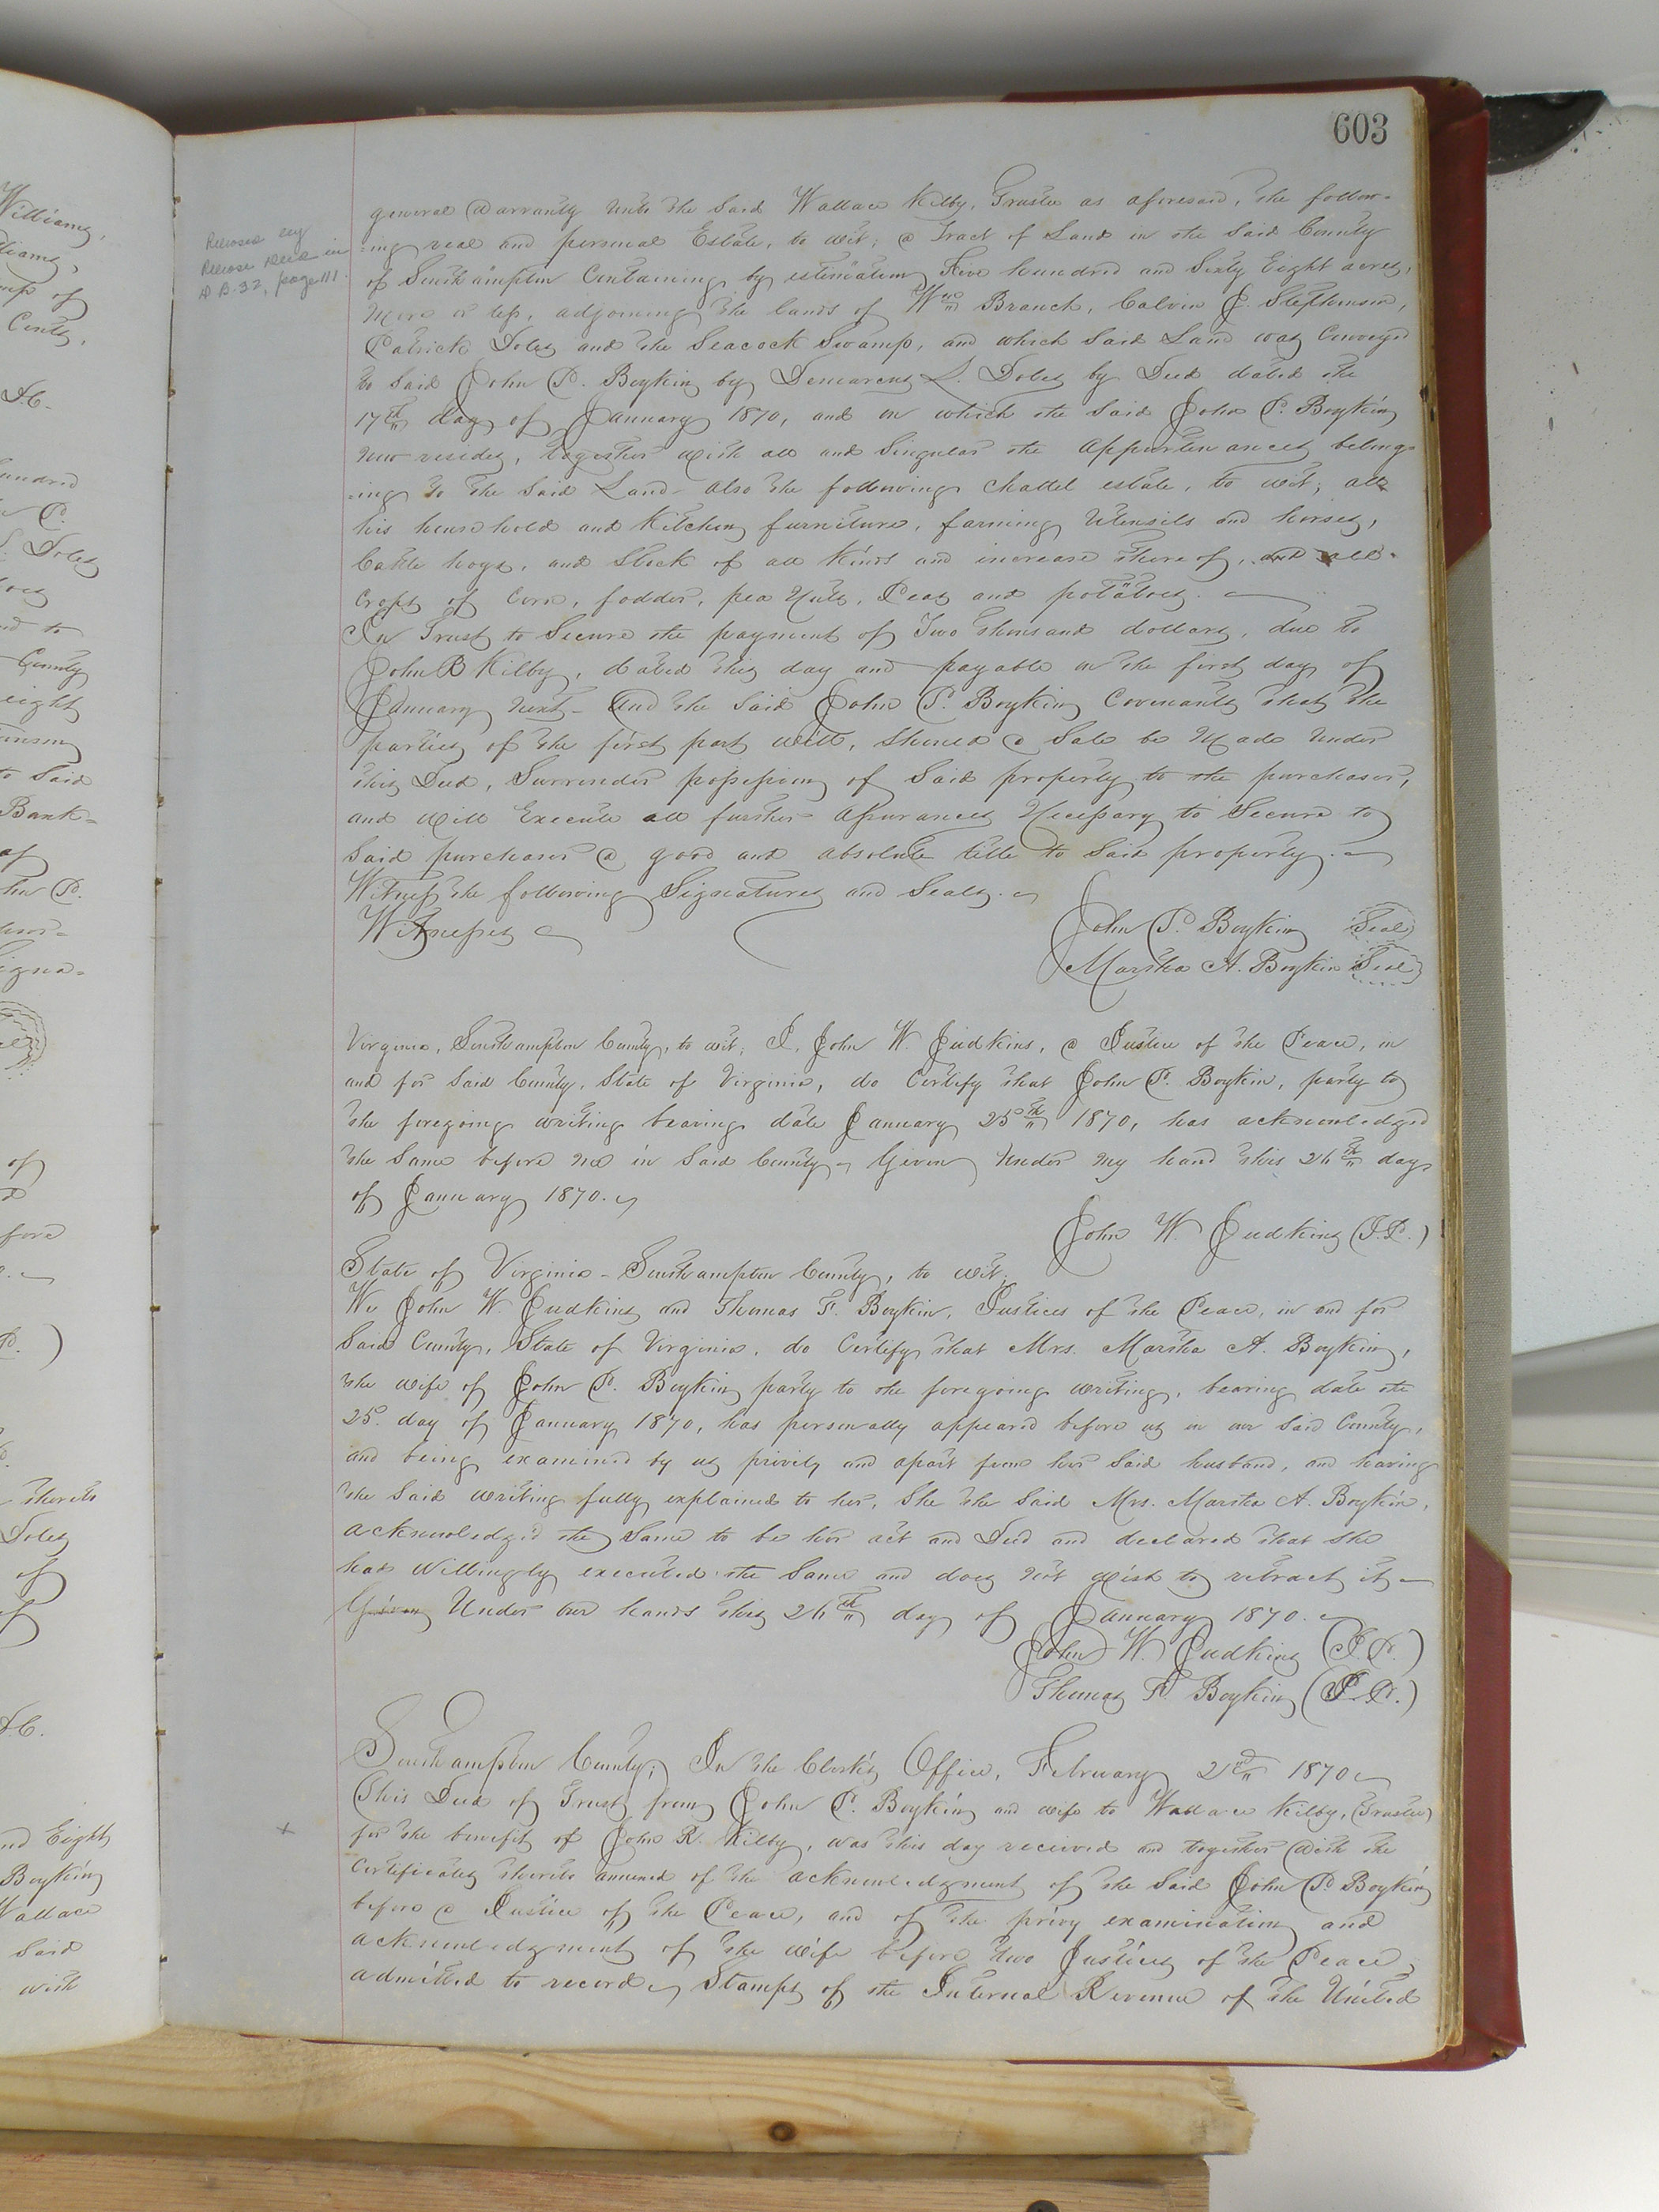 603
Released by
Release Deed in
D.B. 32, page 111.
general Warranty unto the said Wallace Kilby, Trustee as aforesaid, the follow-
-ing real and personal Estate, to wit; a Tract of Land in the said County
of Southampton Containing by estimation Five hundred and Sixty Eight acres,
more or less, adjoining the lands of Wm Branch, Calvin J. Stephenson,
Patrick Doles and the Seacock Swamp, and which said Land was Conveyed
to said John P. Boykin by L. Doles by Deed dated the
17th day of January 1870, and on which the said John P. Boykin
now resides, together with all and Singular the Appurtenances belong-
-ing to the said Land - also the following chattel estate, to wit; all
his household and Kitchen furniture, farming Utensils and horses,
Cattle hogs, and Stock of all Kinds and increase thereof, and all
Crops of Corn, fodder, pea Nuts, Peas and potatoes.
In Trust to Secure the payment of Two thousand dollars, due to
John R Kilby, dated this day and payable on the first day of
January next - And the said John P. Boykin Covenants that the
parties of the first part will, should a Sale be Made under
this Deed, Surrender possession of Said property to the purchaser,
and will Execute all further assurances Necessary to Secure to
Said purchaser a good and absolute title to Said property.
Witness the following Signatures and Seals.
Witnesses
John P. Boykin Seal
Martha A. Boykin Seal
Virginia, Southampton County, to wit; I, John W. Judkins, a Justice of the Peace, in
and for Said County, State of Virginia, do Certify that John P. Boykin, party to
the foregoing writing bearing date January 25th 1870, has acknowledged
the Same before me in Said County, Given Under my hand this 26th day
of January 1870.
John W. Judkins (J.P.)
State of Virginia - Southampton County, to wit;
We John W. Judkins and Thomas F. Boykin, Justices of the Peace, in and for
Said County, State of Virginia, do Certify that Mrs. Martha A. Boykin,
the wife of John P. Boykin party to the foregoing writing, bearing date the
25. day of January 1870, has personally appeared before us in our Said County,
and being examined by us privily and apart from her Said husband, and having
the Said writing fully explained to her, She the Said Mrs. Martha A. Boykin,
acknowledged the Same to be her act and Deed and declared that she
had Willingly executed the Same and does not wish to retract it
Given Under our hands this 26th day of January 1870.
John W. Judkins (J.P.)
Thomas F. Boykin (J.P.)
Southampton County; In the Clerk's Office, February 2nd 1870
This Deed of Trust from John P. Boykin and wife to Wallace Kilby, (Trustee)
for the benefit of John R. Kilby, was this day received and together with the
Certificates thereto annexed of the acknowledgment of the Said John P. Boykin
before a Justice of the Peace, and of the privy examination and
acknowledgment of the wife before two Justices of the Peace,
admitted to record, Stamps of the Internal Revenue of the United